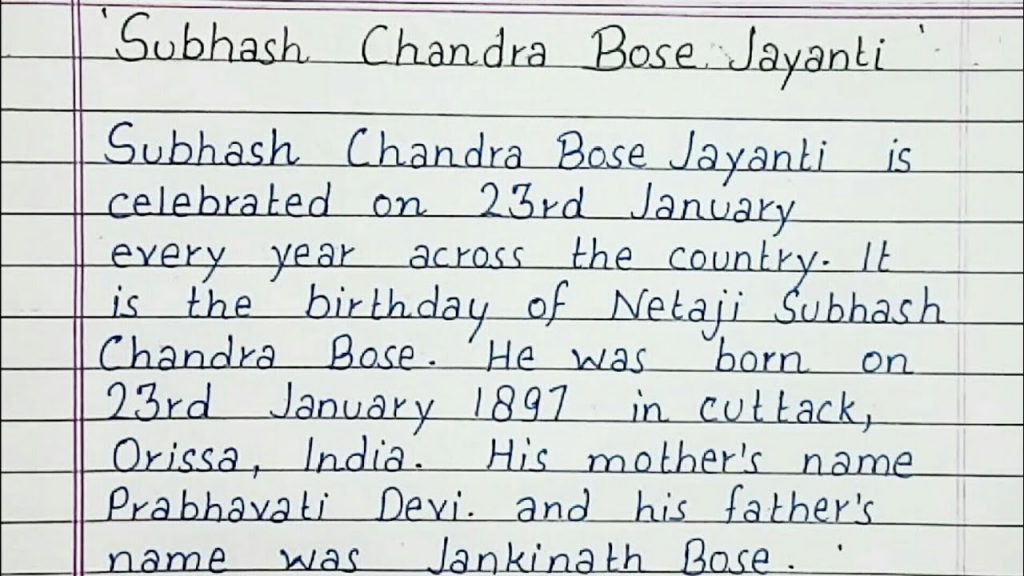 'Subhash Chandra Bose Jayanti'
Subhash Chandra Bose Jayanti is
celebrated on 23rd January
every year across the country. It
is the birthday of Netaji Subhash
Chandra Bose. He was born on
23rd January 1897 in cuttack,
Orissa, India. His mother's name
Prabhavati Devi. and his father's
name was Jankinath Bose.